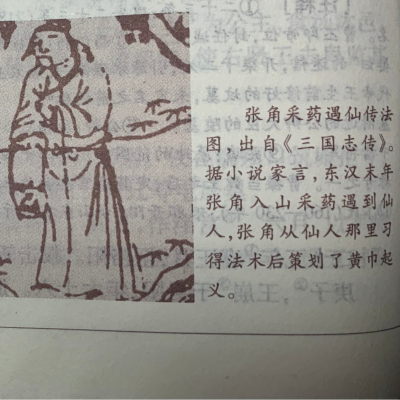 张角采药遇仙传法
图，出自《三国志传》。
据小说家言，东汉末年
张角入山采药遇到仙
人，张角从仙人那里习
得法术后策划了黄巾起
义。